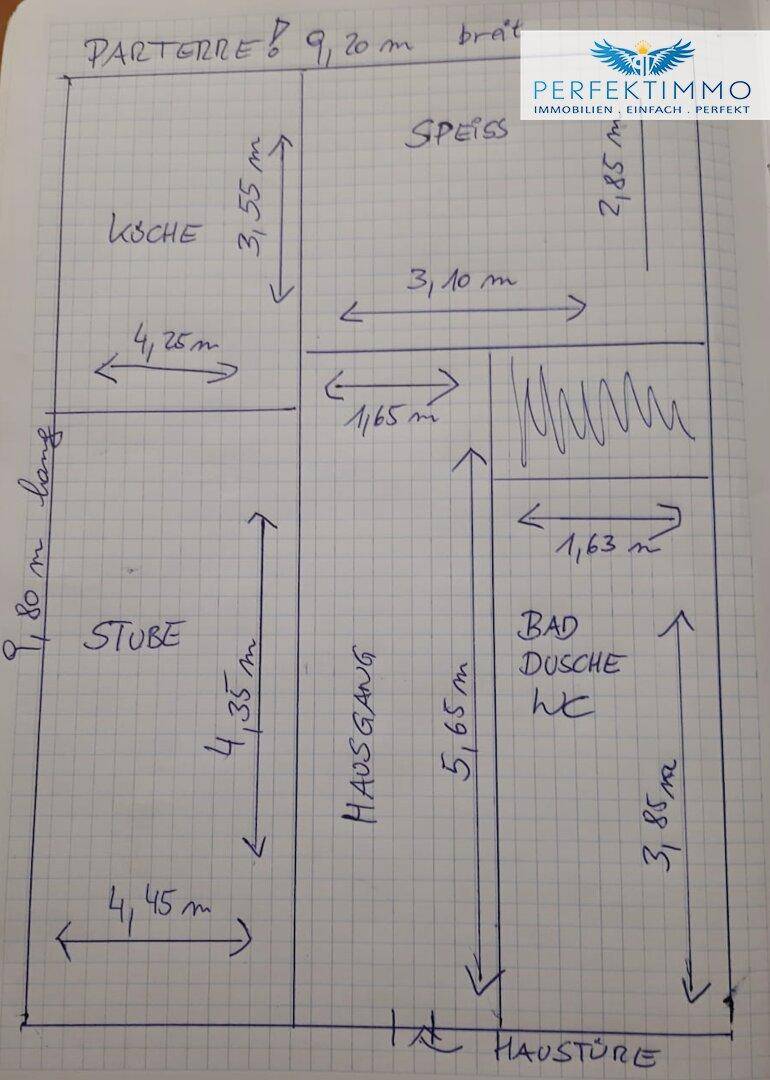 PARTERRE! 9,20 m breit
PERFEKTIMMO
IMMOBILIEN . EINFACH . PERFEKT
SPEISS
2,85 m
3,55 m
KÜCHE
3,10 m
4,25m
1,65 m
1,63 m
9,80 m lang
STUBE
4,35 m
HAUSGANG
5,65 m
BAD
DUSCHE
WC
3,85m
4,45 m
HAUSTÜRE